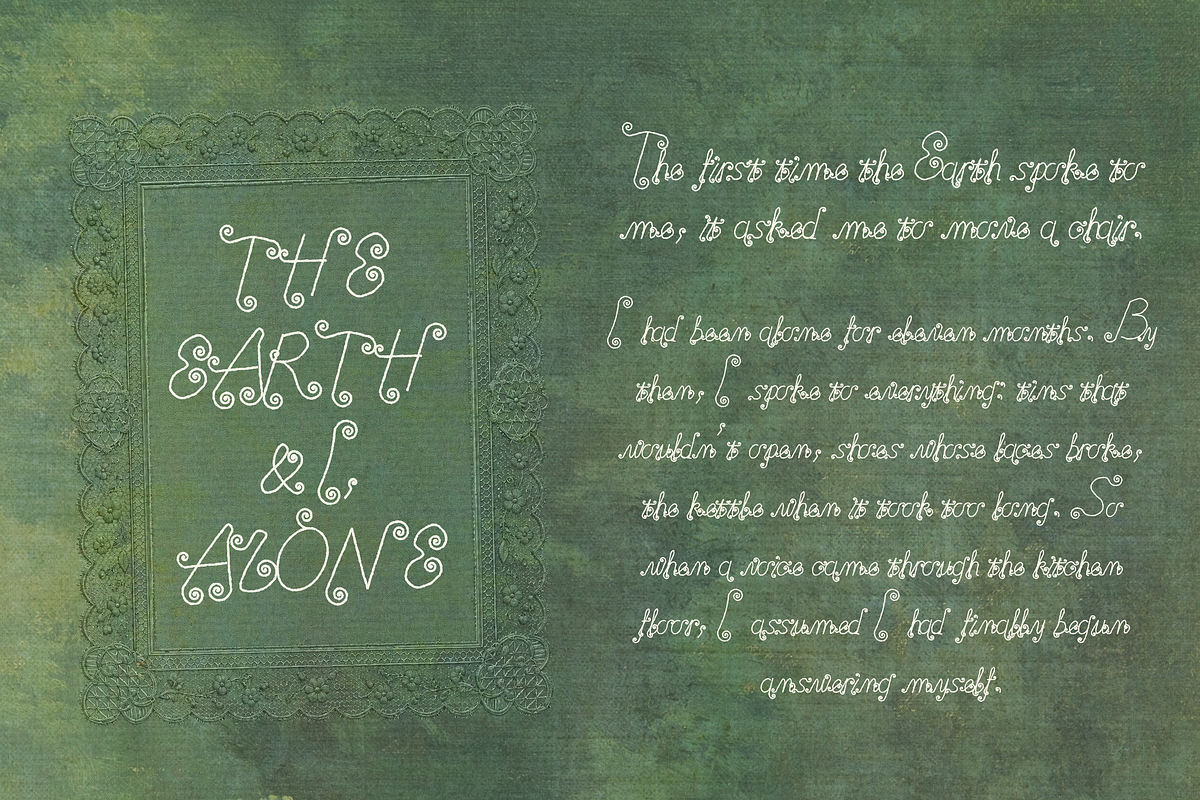 THE
EARTH
& I,
ALONE
The first time the Earth spoke to
me, it asked me to move a chair.
I had been alone for eleven months. By
then, I spoke to everything: tins that
wouldn't open, shoes whose laces broke,
the kettle when it took too long. So
when a voice came through the kitchen
floor, I assumed I had finally begun
answering myself.